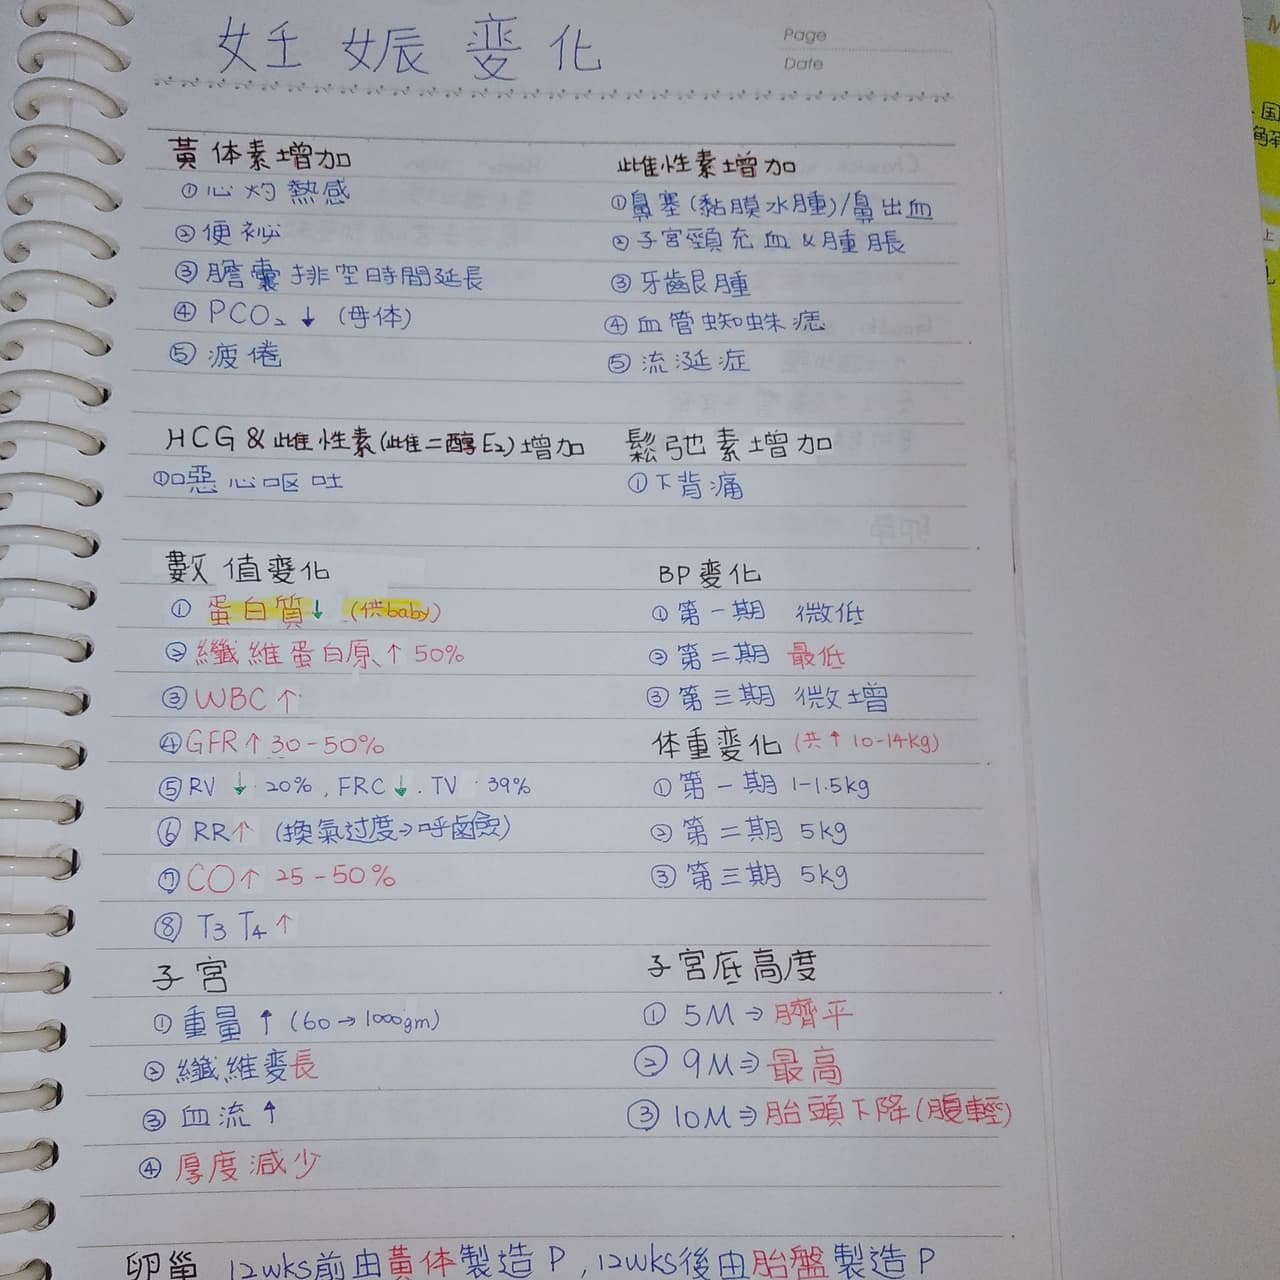 妊娠変化
Page
Date
黃体素增加
①心灼熱感
②便祕
③膽囊排空時間延長
④PCO₂↓(母体)
⑤疲倦
雌性素增加
①鼻塞(黏膜水腫)/鼻出血
②子宮頸充血&腫脹
③牙齦腫
④血管蜘蛛痣
⑤流涎症
HCG&雌性素(雌二醇E₂)增加
①噁心嘔吐
鬆弛素增加
①下背痛
數值変化
①蛋白質↓(供baby)
②纖維蛋白原↑50%
③WBC↑
④GFR↑30-50%
⑤RV↓20%,FRC↓.TV 39%
⑥RR↑(換氣过度→呼鹼)
⑦CO↑25-50%
⑧T₃T₄↑
BP変化
①第一期 微低
②第二期 最低
③第三期 微增
体重変化(共↑10-14kg)
①第一期 1-1.5kg
②第二期 5kg
③第三期 5kg
子宮
①重量↑(60→1000gm)
②纖維変長
③血流↑
④厚度減少
子宮底高度
①5M⇒臍平
②9M⇒最高
③10M⇒胎頭下降(腹輕)
卵巢 12wks前由黃体製造P,12wks後由胎盤製造P
国
上